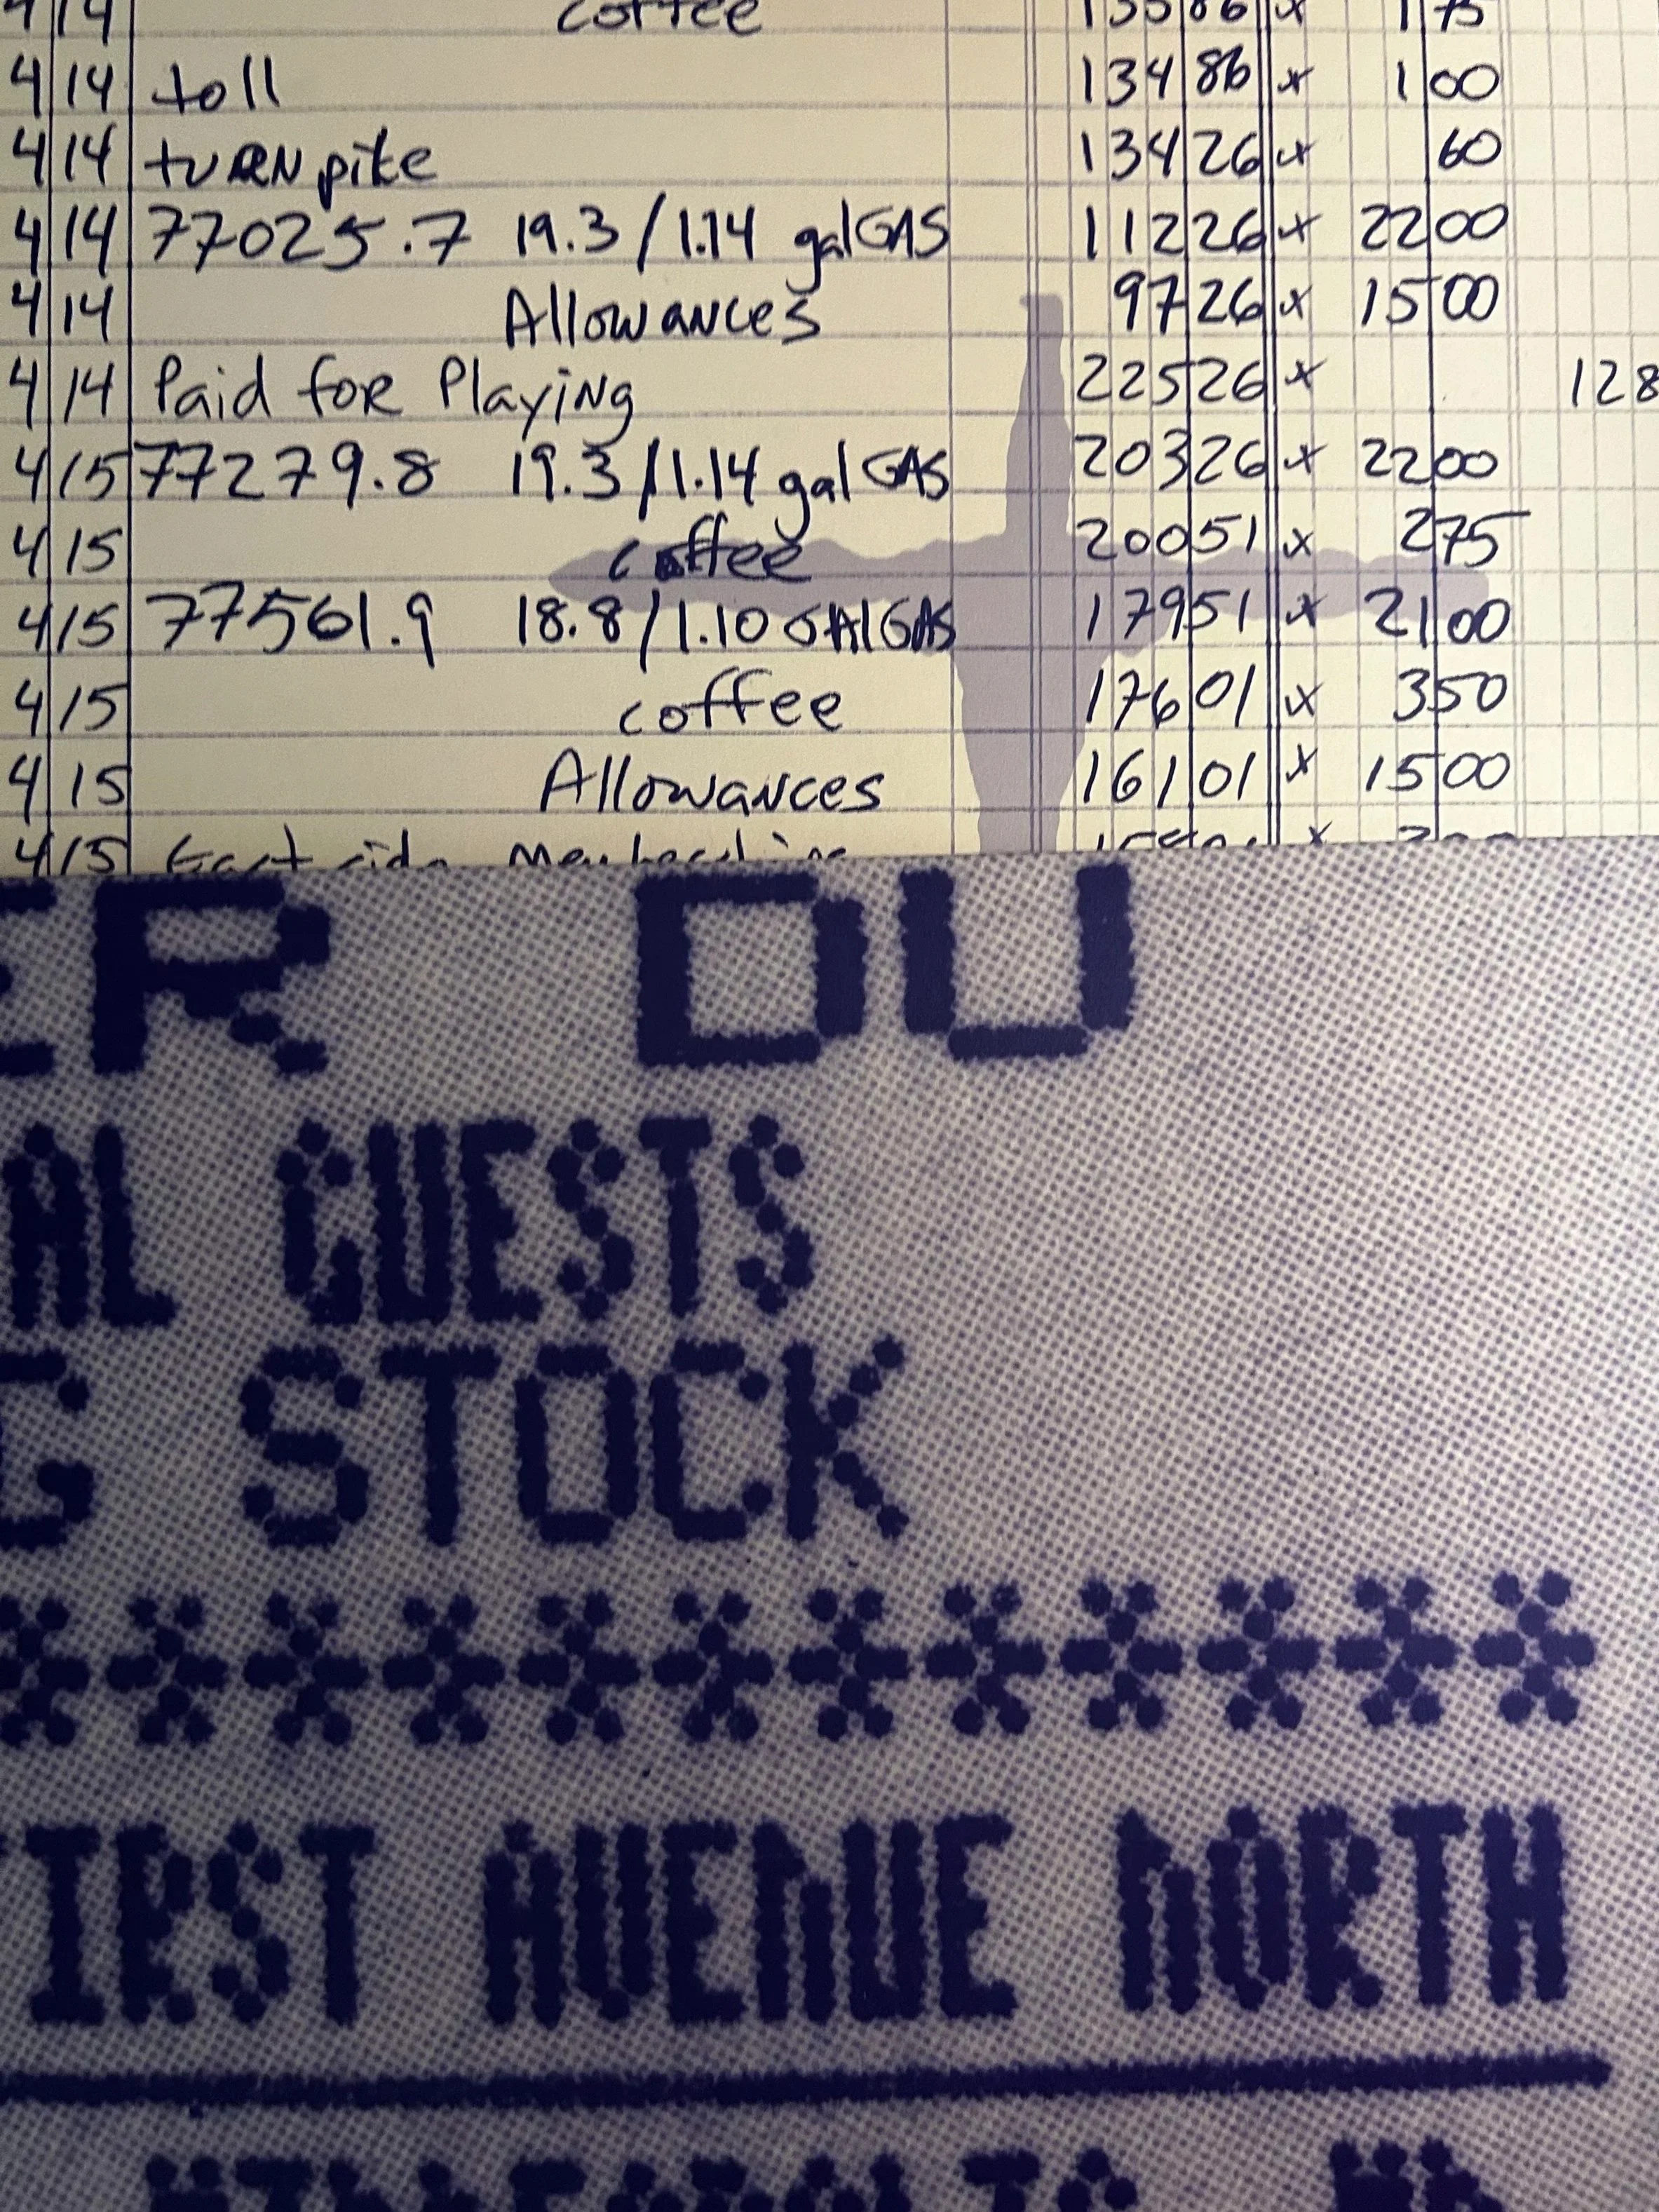 4 14 coffee 1 75
4 14 toll 134 86 x 1 00
4 14 tuRN pike 134 26 x 60
4 14 77025.7 19.3/1.14 gal GAS 112 26 x 22 00
4 14 Allowances 97 26 x 15 00
4 14 Paid for Playing 225 26 x 128
4 15 77279.8 19.3/1.14 gal GAS 203 26 x 22 00
4 15 coffee 200 51 x 2 75
4 15 77561.9 18.8/1.10 GAl GAS 179 51 x 21 00
4 15 coffee 176 01 x 3 50
4 15 Allowances 161 01 x 15 00
4 15 East side x
ER DU
AL GUESTS
G STOCK
************
IRST AVENUE NORTH